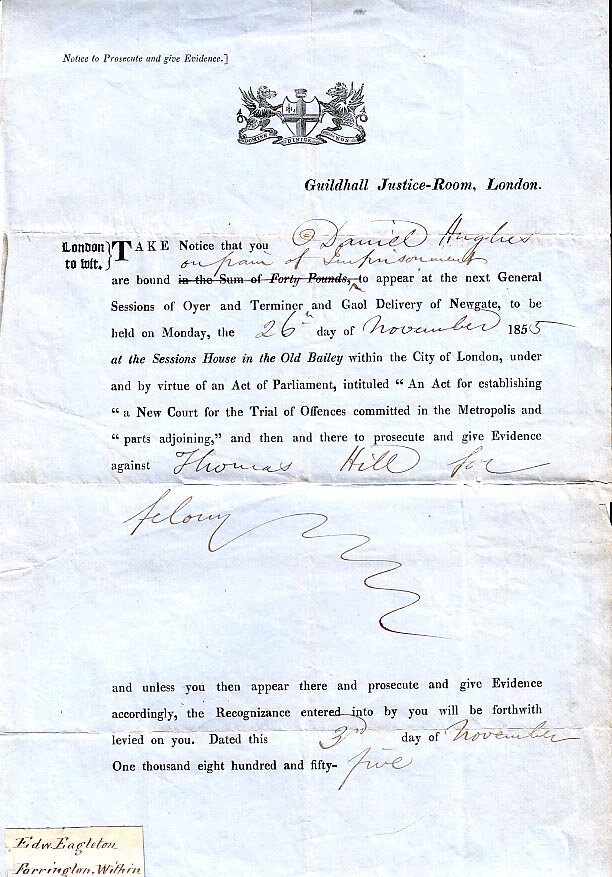 Notice to Prosecute and give Evidence.]
DOMINE DIRIGE NOS
Guildhall Justice-Room, London.
London } TAKE Notice that you Daniel Hughes
to wit.
on pain of Imprisonment
are bound in the Sum of Forty Pounds, to appear at the next General
Sessions of Oyer and Terminer and Gaol Delivery of Newgate, to be
held on Monday, the 26th day of November 1855
at the Sessions House in the Old Bailey within the City of London, under
and by virtue of an Act of Parliament, intituled “ An Act for establishing
“ a New Court for the Trial of Offences committed in the Metropolis and
“ parts adjoining,” and then and there to prosecute and give Evidence
against Thomas Hill for
felony
and unless you then appear there and prosecute and give Evidence
accordingly, the Recognizance entered into by you will be forthwith
levied on you. Dated this 3rd day of November
One thousand eight hundred and fifty- five
Edw. Eagleton
Farrington. Within